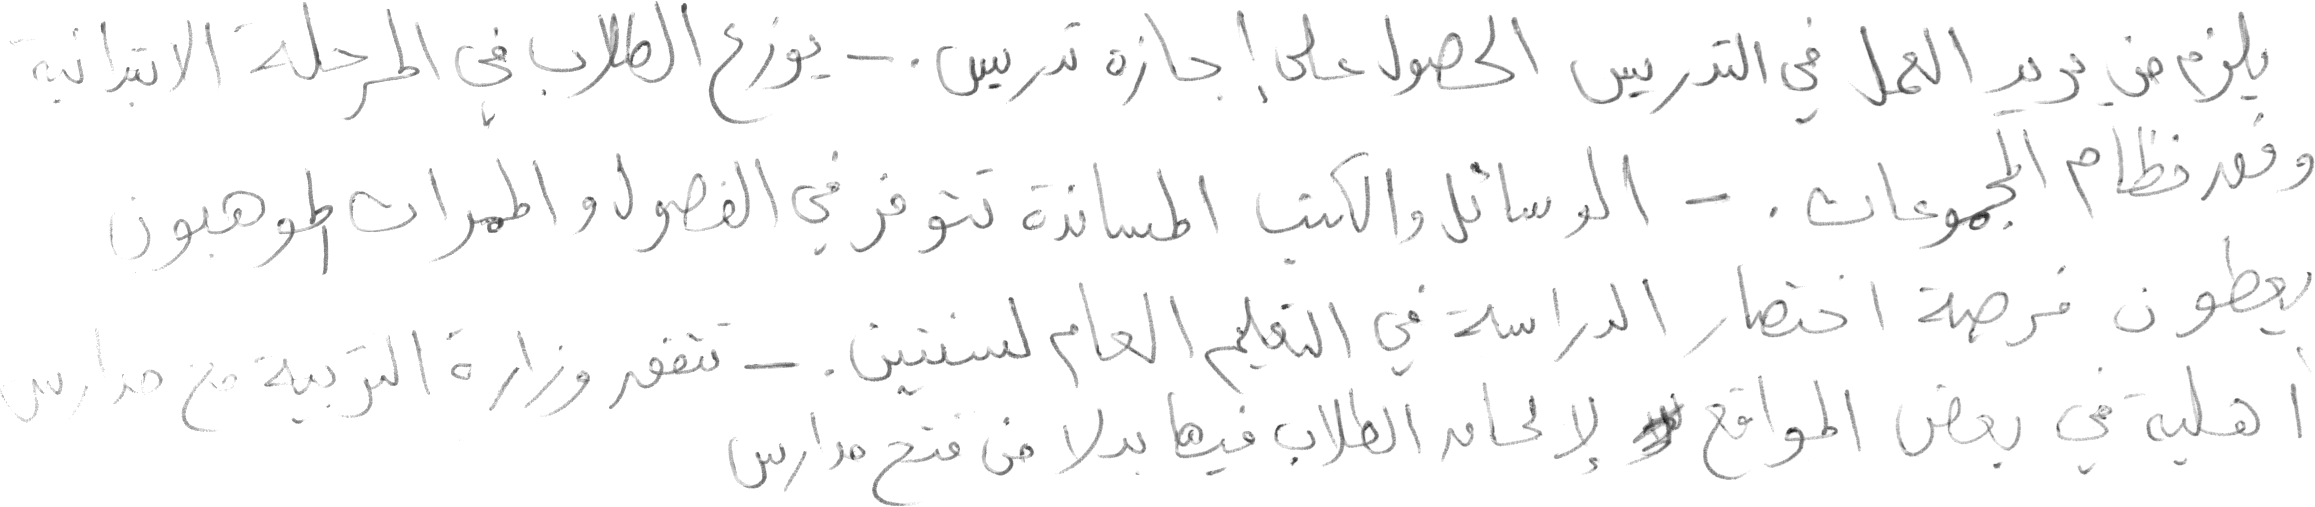 يلزم من يريد العمل في التدريس الحصول على إجازه تدريس. - يوزع الطلاب في المرحلة الابتدائية
وفق نظام المجموعات. - الوسائل والكتب المساندة تتوفر في الفصول والممرات الموهبون
يعطون فرصة اختصار الدراسة في التعليم العام لسنتين. - تتفق وزارة التربية مع مدارس
أهلية في بعض المواقع لإلحاق الطلاب فيها بدلا من فتح مدارس